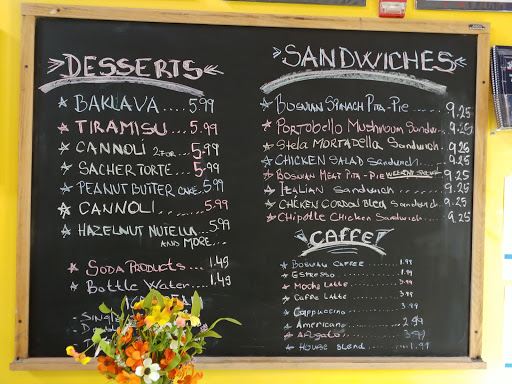 DESSERTS
BAKLAVA.....5.99
TIRAMISU...5.99
CANNOLI 2 FOR...5.99
SACHER TORTE..5.99
PEANUT BUTTER CAKE..5.99
CANNOLI.........5.99
HAZELNUT NUTELLA....5.99
AND MORE...
SODA PRODUCTS...1.49
Bottle Water....1.49
Single
SANDWICHES
BOSNIAN SPINACH PITA-PIE....9.25
PORTOBELLO MUSHROOM SANDWI..9.25
Stela MORTADELLA Sandwich..9.25
CHICKEN SALAD SANDWICH....9.25
BOSNIAN MEAT PITA-PIE 9.25
ITALIAN SANDWICH.......9.25
CHICKEN CORDON BLEU SANDWICH.9.25
Chipotle Chicken Sandwich....9.25
CAFFE
BOSNIAN COFFEE.....1.99
ESPRESSO.........1.99
Mocha Latte.......3.99
Caffe Latte.......3.99
Cappuccino
Americano......2.99
Afogato.......3.99
HOUSE BLEND......1.99